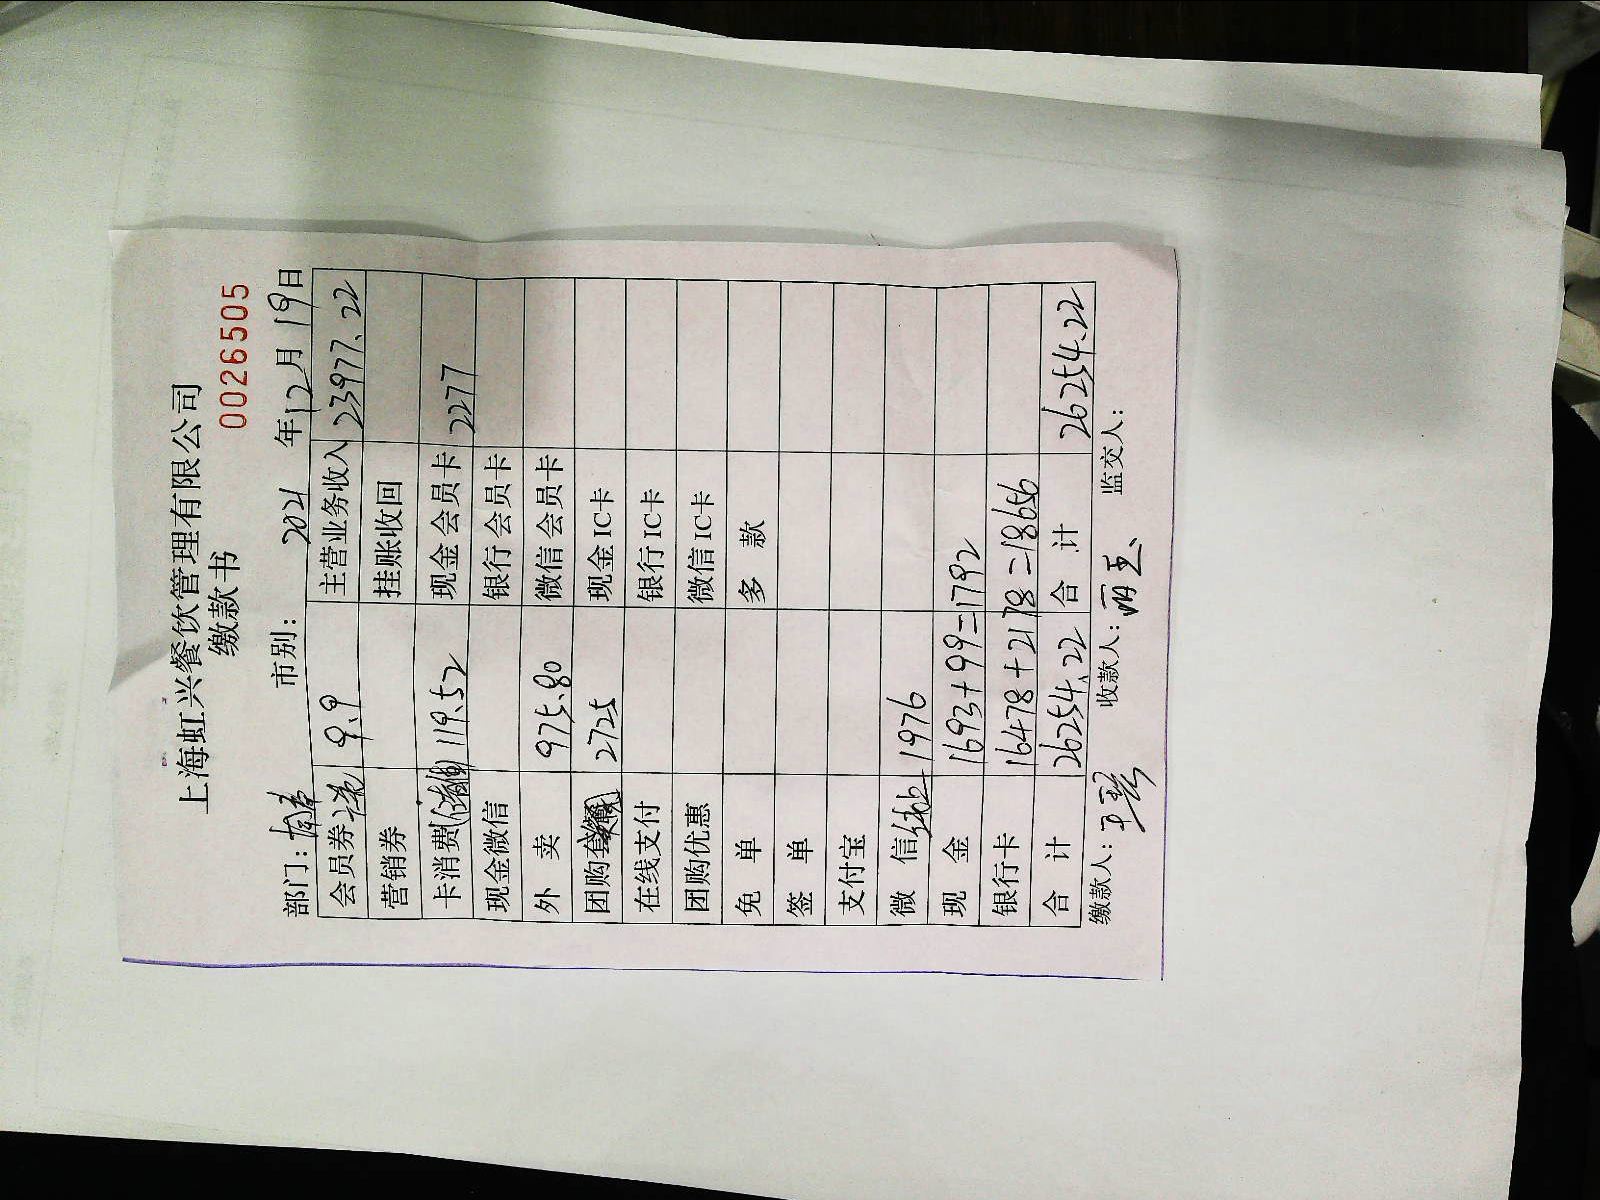 上海虹兴餐饮管理有限公司
缴款书
0026505
部门: 市别: 2021 年 12 月 19 日
会员券 9.9 主营业务收入 23977.22
营销券 挂账收回
卡消费 119.52 现金会员卡 2277
现金微信 银行会员卡
外 卖 975.80 微信会员卡
团购套餐 2725 现金IC卡
在线支付 银行IC卡
团购优惠 微信IC卡
免 单 多 款
签 单
支付宝
微 信 1976
现 金 1693+99=1792
银行卡 16478+2178=18656
合 计 26254.22 合 计 26254.22
缴款人: 收款人: 监交人: